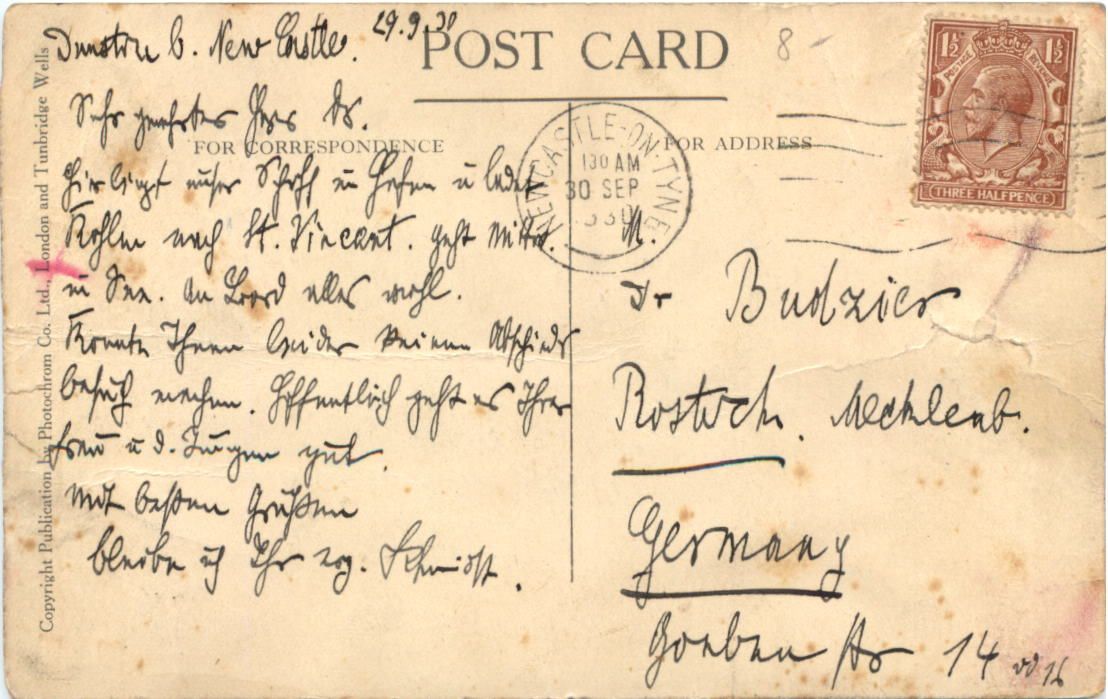 Dunston b. New Castle. 29.9.30
POST CARD
8
1½ 1½
POSTAGE REVENUE
THREE HALFPENCE
FOR CORRESPONDENCE
FOR ADDRESS
NEWCASTLE-ON-TYNE
130 AM
30 SEP
1930
Sehr geehrter Herr Dr.
Hier liegt unser Schiff im Hafen u ladet
Kohlen nach St. Vincent. geht
in See. An Bord alles wohl.
Konnte Ihnen leider keinen Abschieds
besuch machen. Hoffentlich geht es Ihrer
Frau u d. Jungen gut.
Mit besten Grüßen
bleibe ich Ihr erg.
Dr Budzier
Rostock. Mecklenb.
Germany
Goeben str 14 od 16
Copyright Publication by Photochrom Co. Ltd., London and Tunbridge Wells